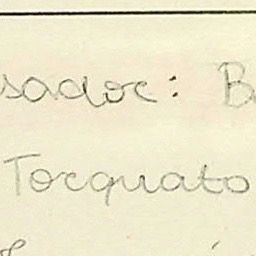 sadoc: B
Torquato